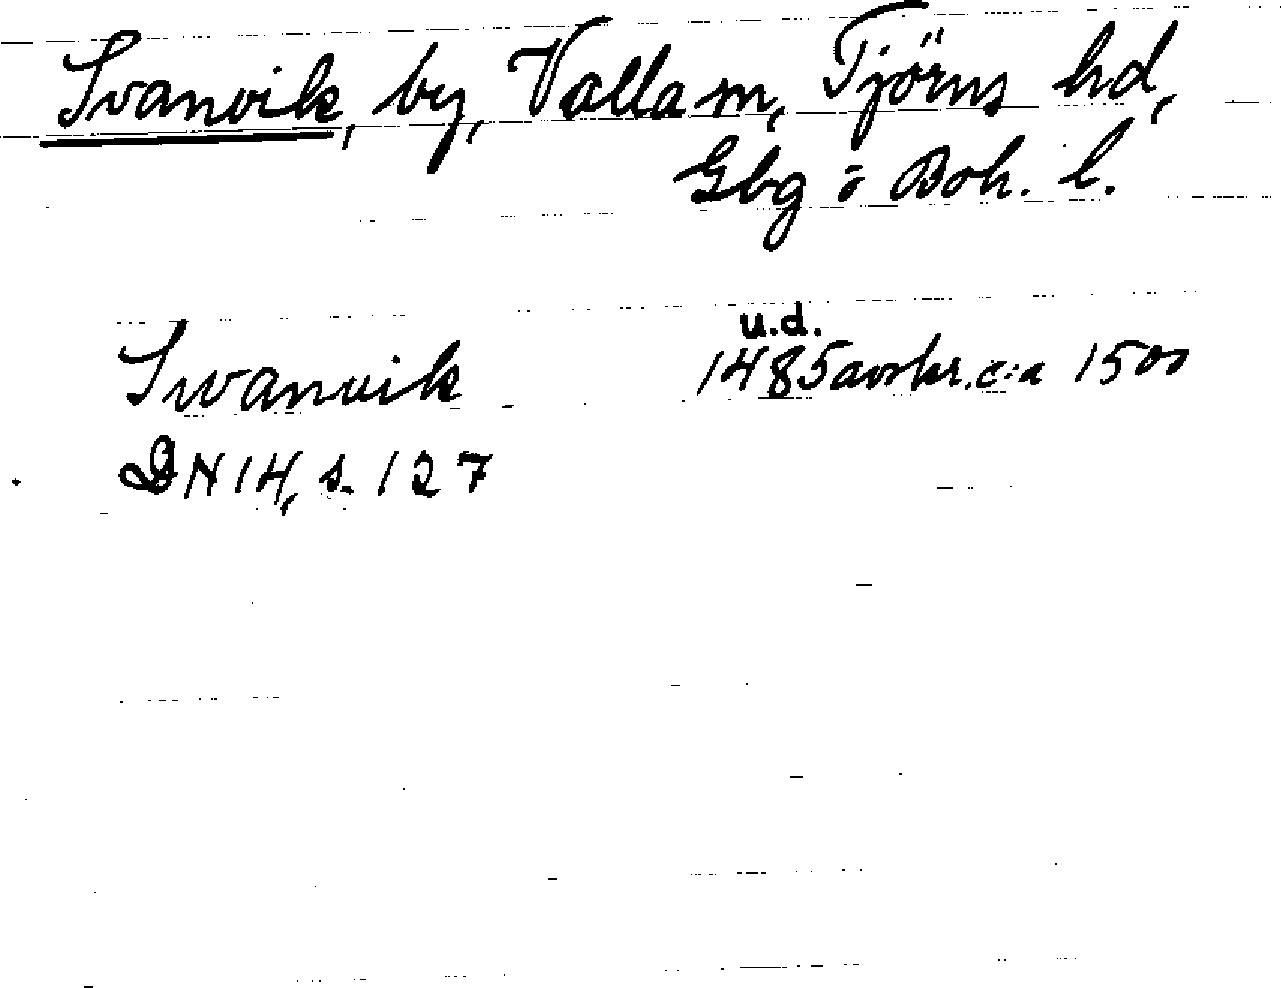 Svanvik, by, Valla sn, Tjörns hd,
Gbg o Boh. l.
u.d.
Swanvik 1485 avskr. c:a 1500
DN 14, s. 127